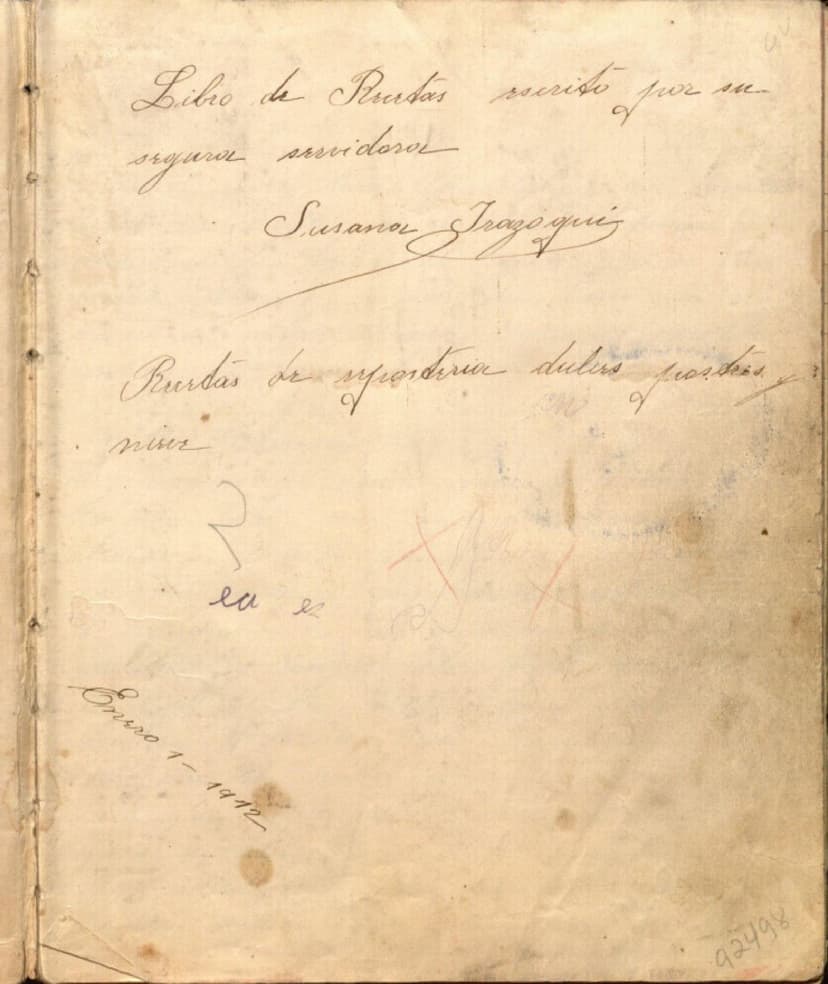 Libro de Recetas escrito por su
segura servidora
Susana Irazoqui
Recetas de reposteria dulces postres y
nieve
ea e
Enero 1 - 1912
92498